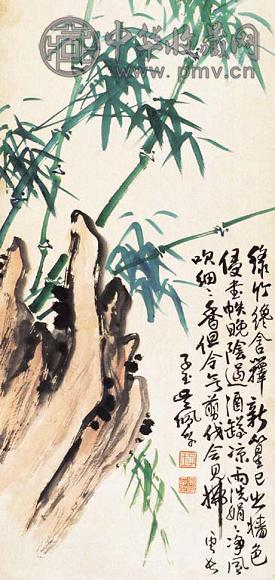 中华收藏网
www.pmv.cn
綠竹纔含籜新篁已出墻色
侵書帙晚陰過酒罇涼雨洗娟〻淨風
吹細〻香但令無剪伐會見拂
雲長
子玉吳佩孚